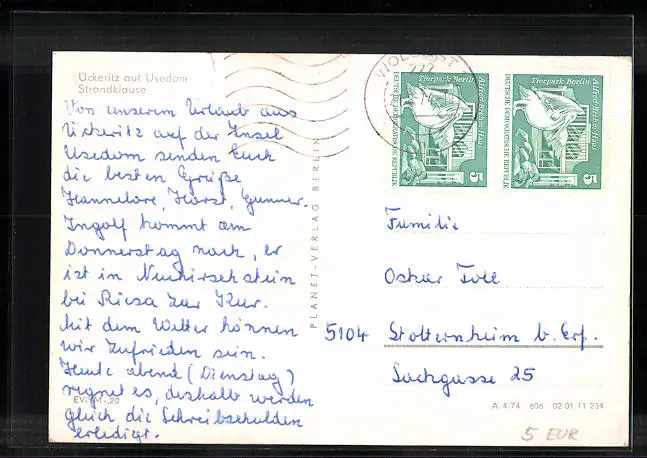 Ückeritz auf Usedom
Strandklause
Von unserem Urlaub aus
Ückeritz auf der Insel
Usedom senden Euch
die besten Grüße
Hannelore, Horst, Gunner.
Ingolf kommt am
Donnerstag nach, er
ist in Neuhirschstein
bei Riesa zur Kur.
Mit dem Wetter können
wir zufrieden sein.
Heute abend (Dienstag)
regnet es, deshalb werden
gleich die Schreibschulden
erledigt.
EVP M -.20
PLANET-VERLAG BERLIN
WOLGAST
222
Tierpark Berlin
Alfred-Brehm-Haus
DEUTSCHE DEMOKRATISCHE REPUBLIK
5
Tierpark Berlin
Alfred-Brehm-Haus
DEUTSCHE DEMOKRATISCHE REPUBLIK
5
Familie
Oskar Toll
5104 Stotternheim b. Erf.
Sackgasse 25
A 4 74 606 02 01 11 234
5 EUR